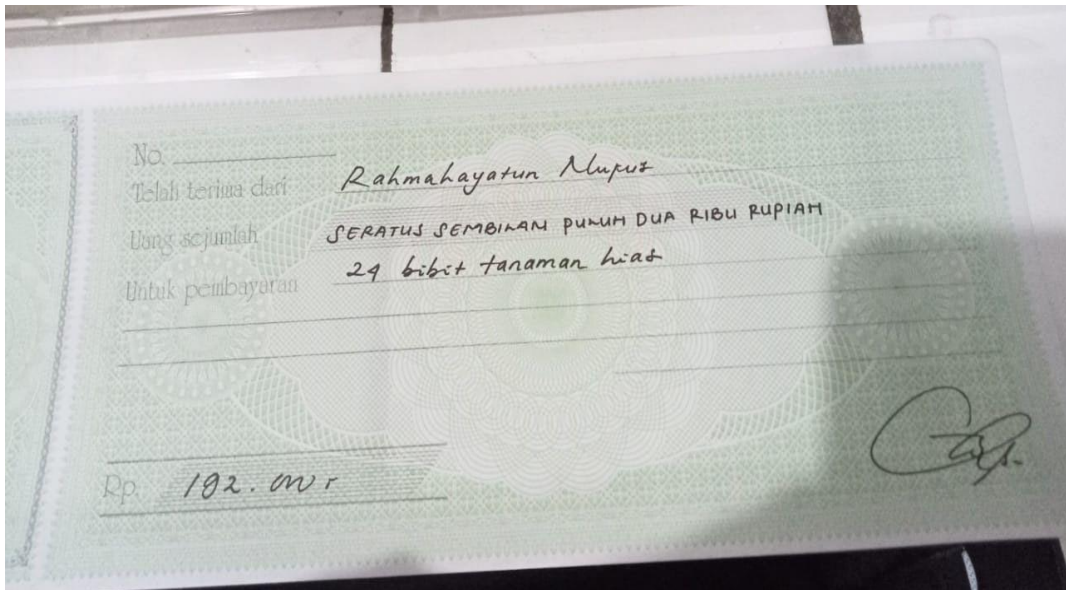 No.
Telah terima dari Rahmahayatun Nupus
Uang sejumlah SERATUS SEMBILAN PULUH DUA RIBU RUPIAH
Untuk pembayaran 24 bibit tanaman hias
Rp. 192.000